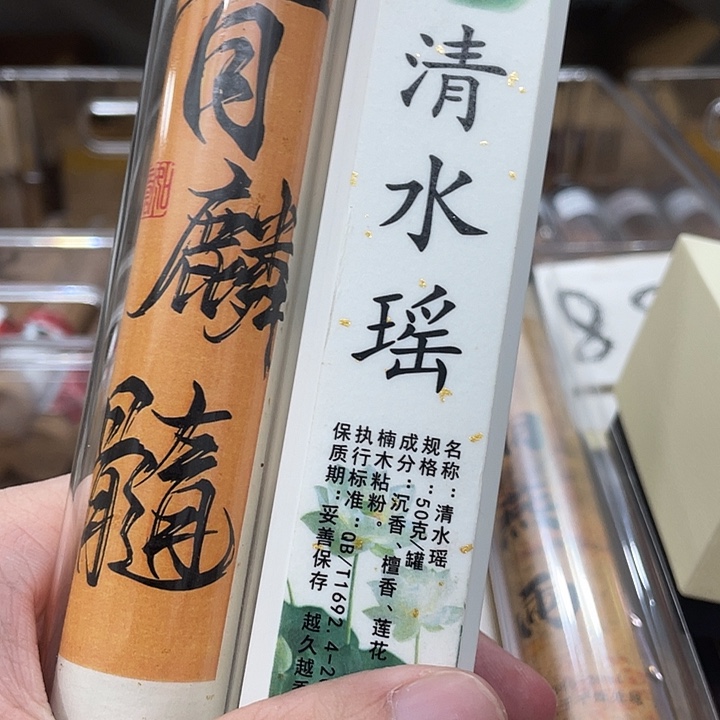 清水瑶
名称：清水瑶
规格：50克/罐
成分：沉香、檀香、莲花
楠木粘粉。
执行标准：QB/T1692.4-2
保质期：妥善保存 越久越
麟髓
88